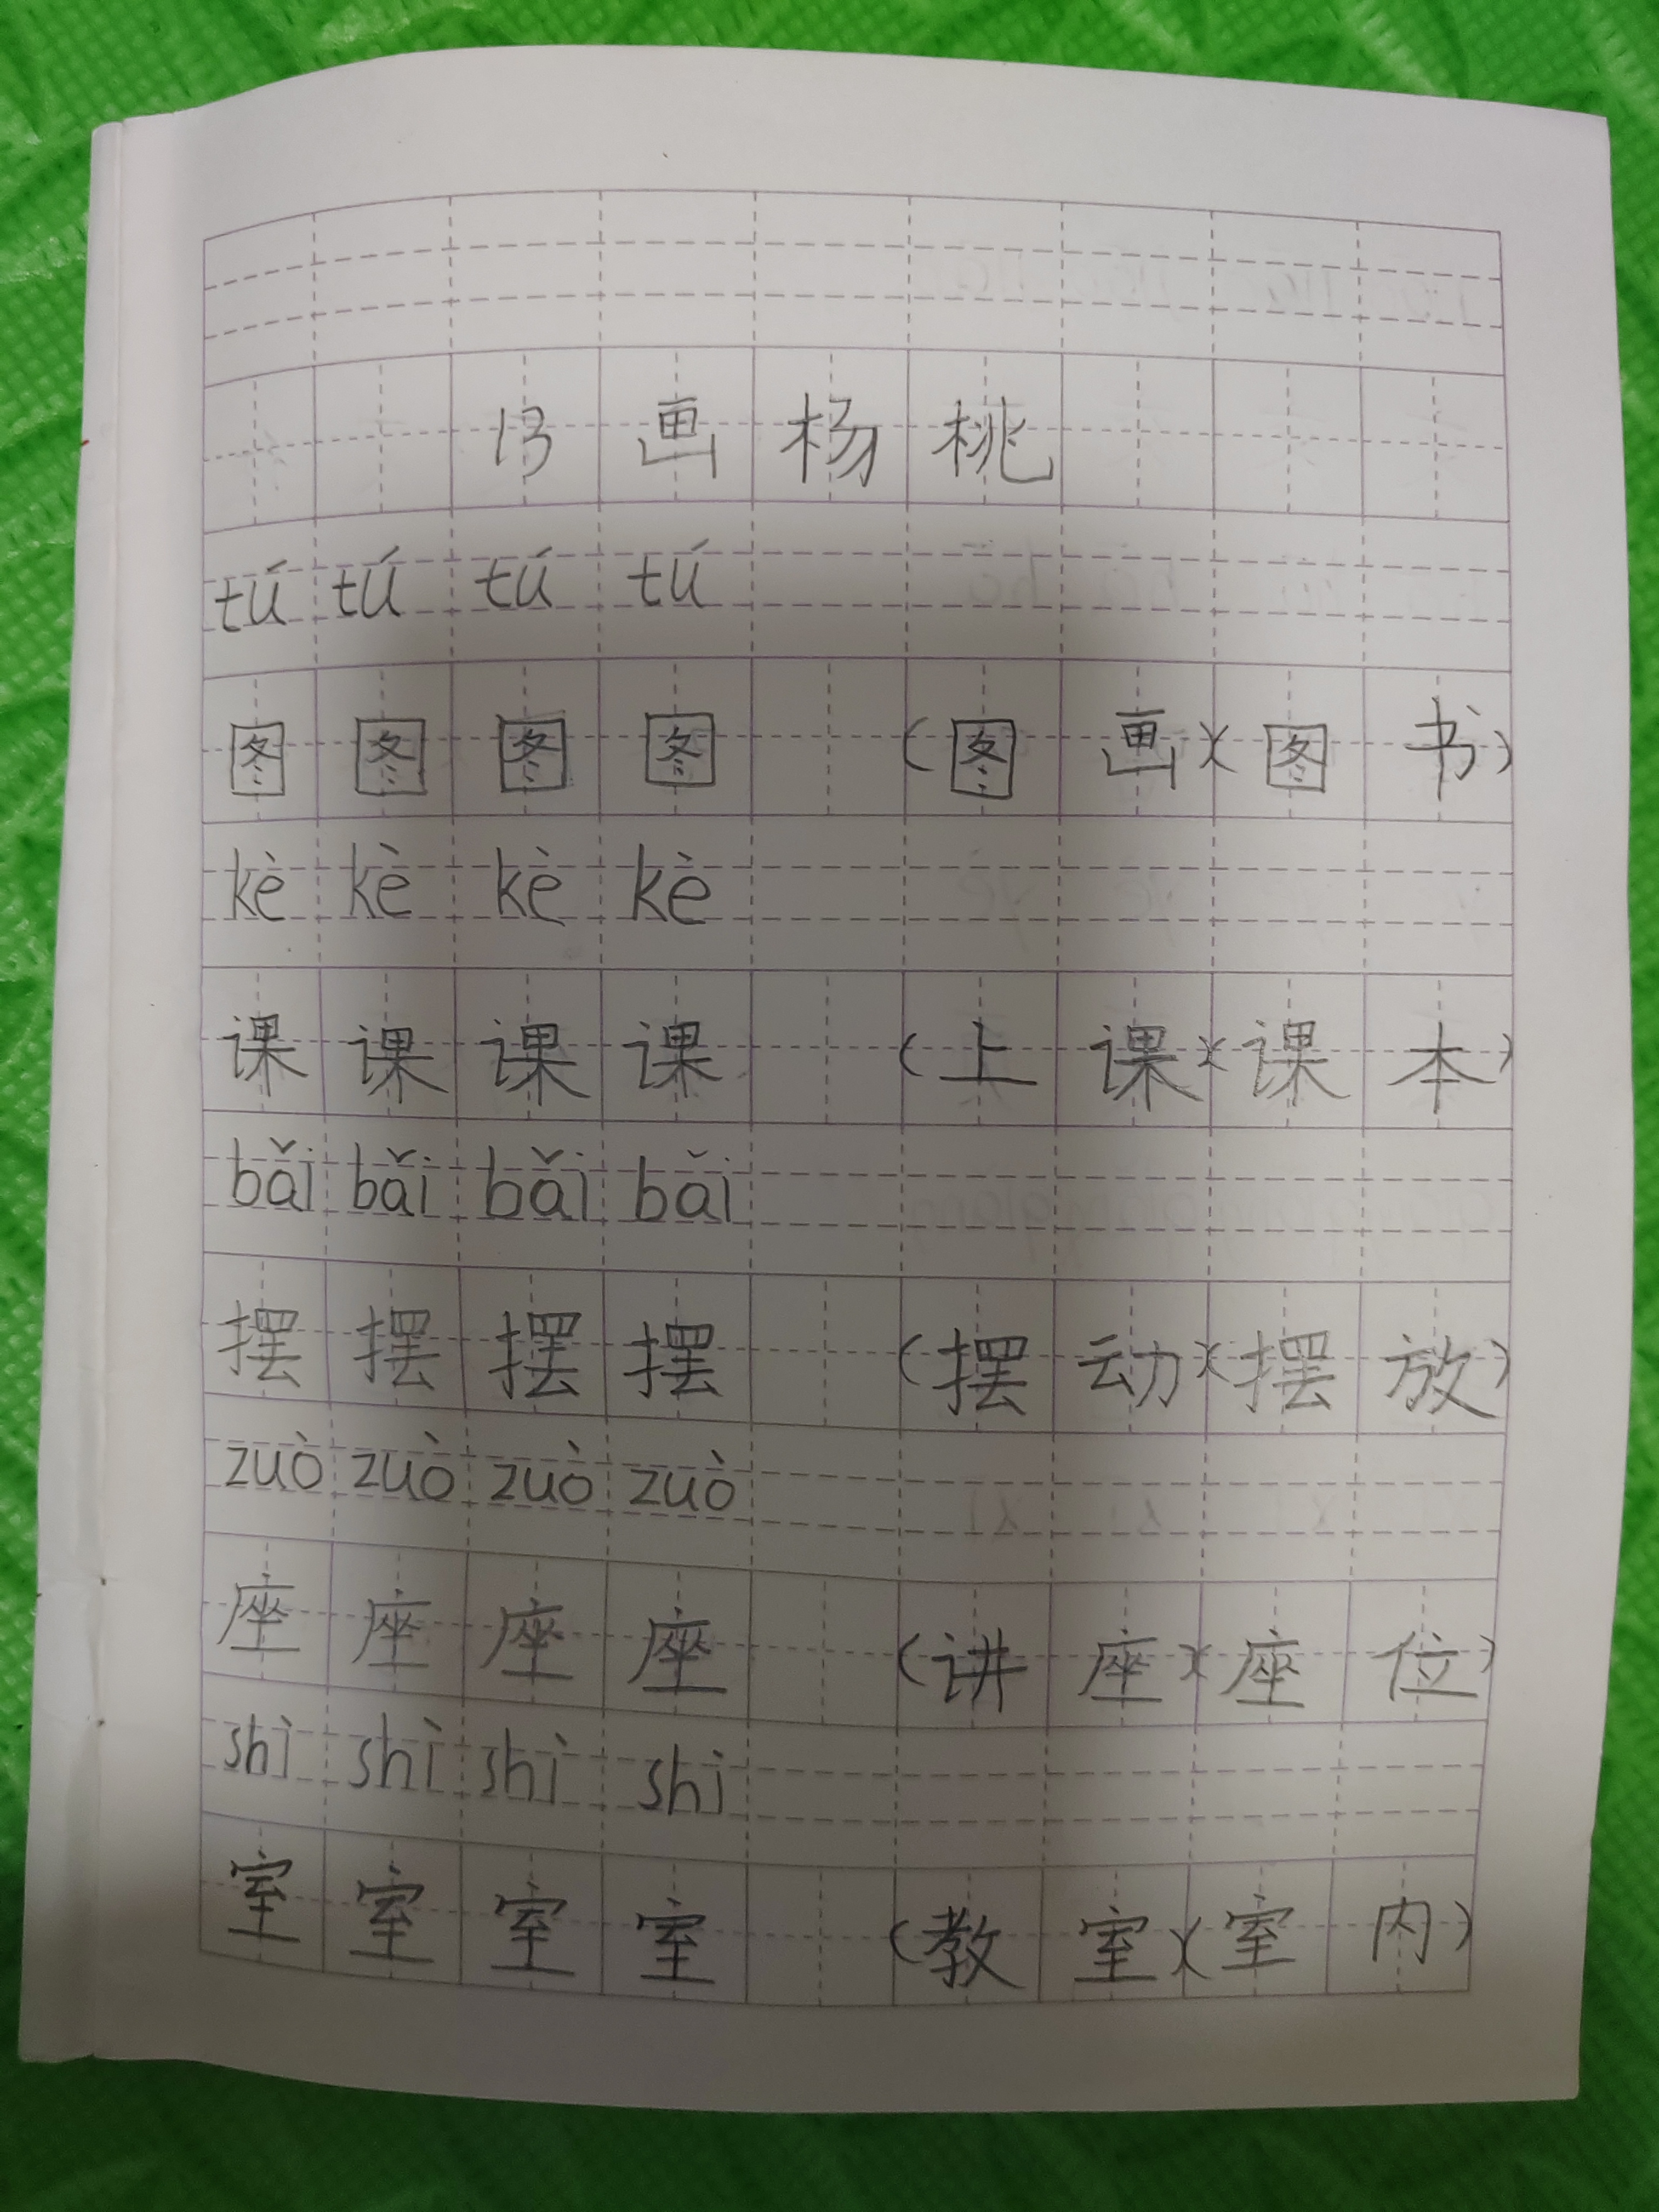 13 画杨桃
tú tú tú tú
图 图 图 图 (图画)(图书)
kè kè kè kè
课 课 课 课 (上课)(课本)
bǎi bǎi bǎi bǎi
摆 摆 摆 摆 (摆动)(摆放)
zuò zuò zuò zuò
座 座 座 座 (讲座)(座位)
shì shì shì shì
室 室 室 室 (教室)(室内)